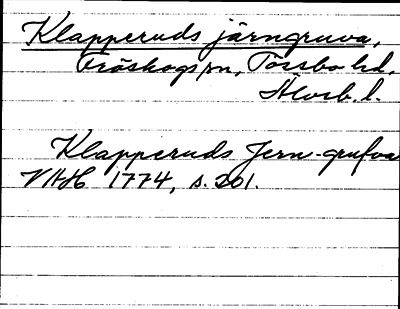 Klapperuds järngruva,
Fröskogs sn, Tössbo hd,
Älvsb. l.
Klapperuds Jern-grufva
VAH 1774, s. 201.